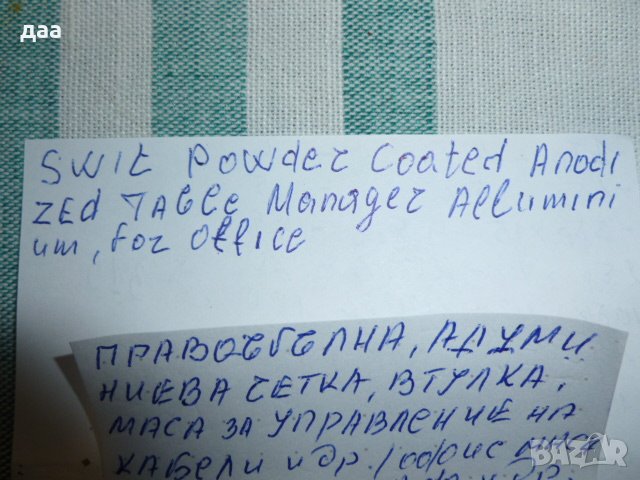 даа
SWIt Powder Coated Anodi
zed Table Manager Allumini
um, for Office
ПРАВОЪГЪЛНА, АЛУМИ
НИЕВА ЧЕТКА, ВТУЛКА,
МАСА ЗА УПРАВЛЕНИЕ НА
КАБЕЛИ и др. / офис маса
BAZAR